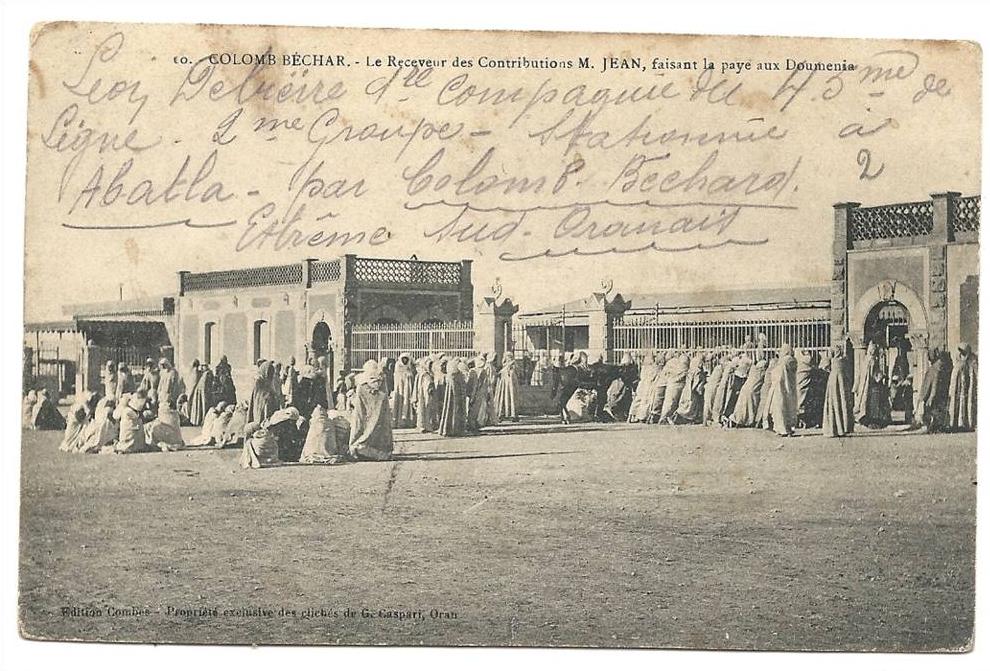 10. COLOMB BÉCHAR. - Le Receveur des Contributions M. JEAN, faisant la paye aux Doumenia
Compagnie du 45me de
Ligne - 2me Groupe - Stationnée à
Abatla - par Colomb-Bechard.
2
Extrême Sud-Oranais
Edition Combes - Propriété exclusive des clichés de G. Gaspari, Oran